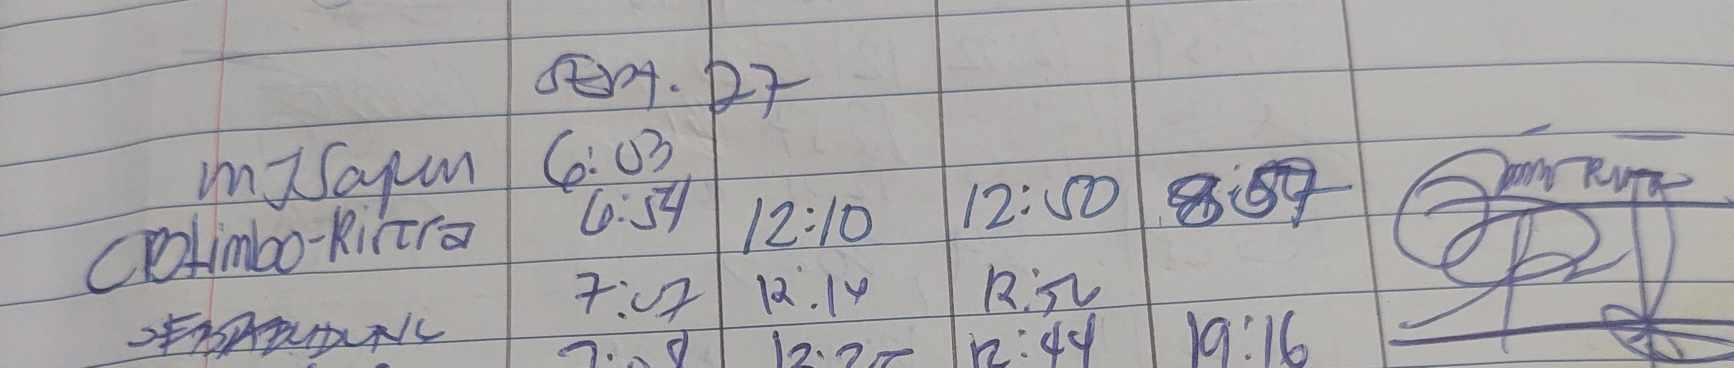 Sept. 27
MJ Sapun 6:03
Colimbo-Rivera 6:54 12:10 12:50 8:57
7:07 12:14 12:56
12:44 19:16